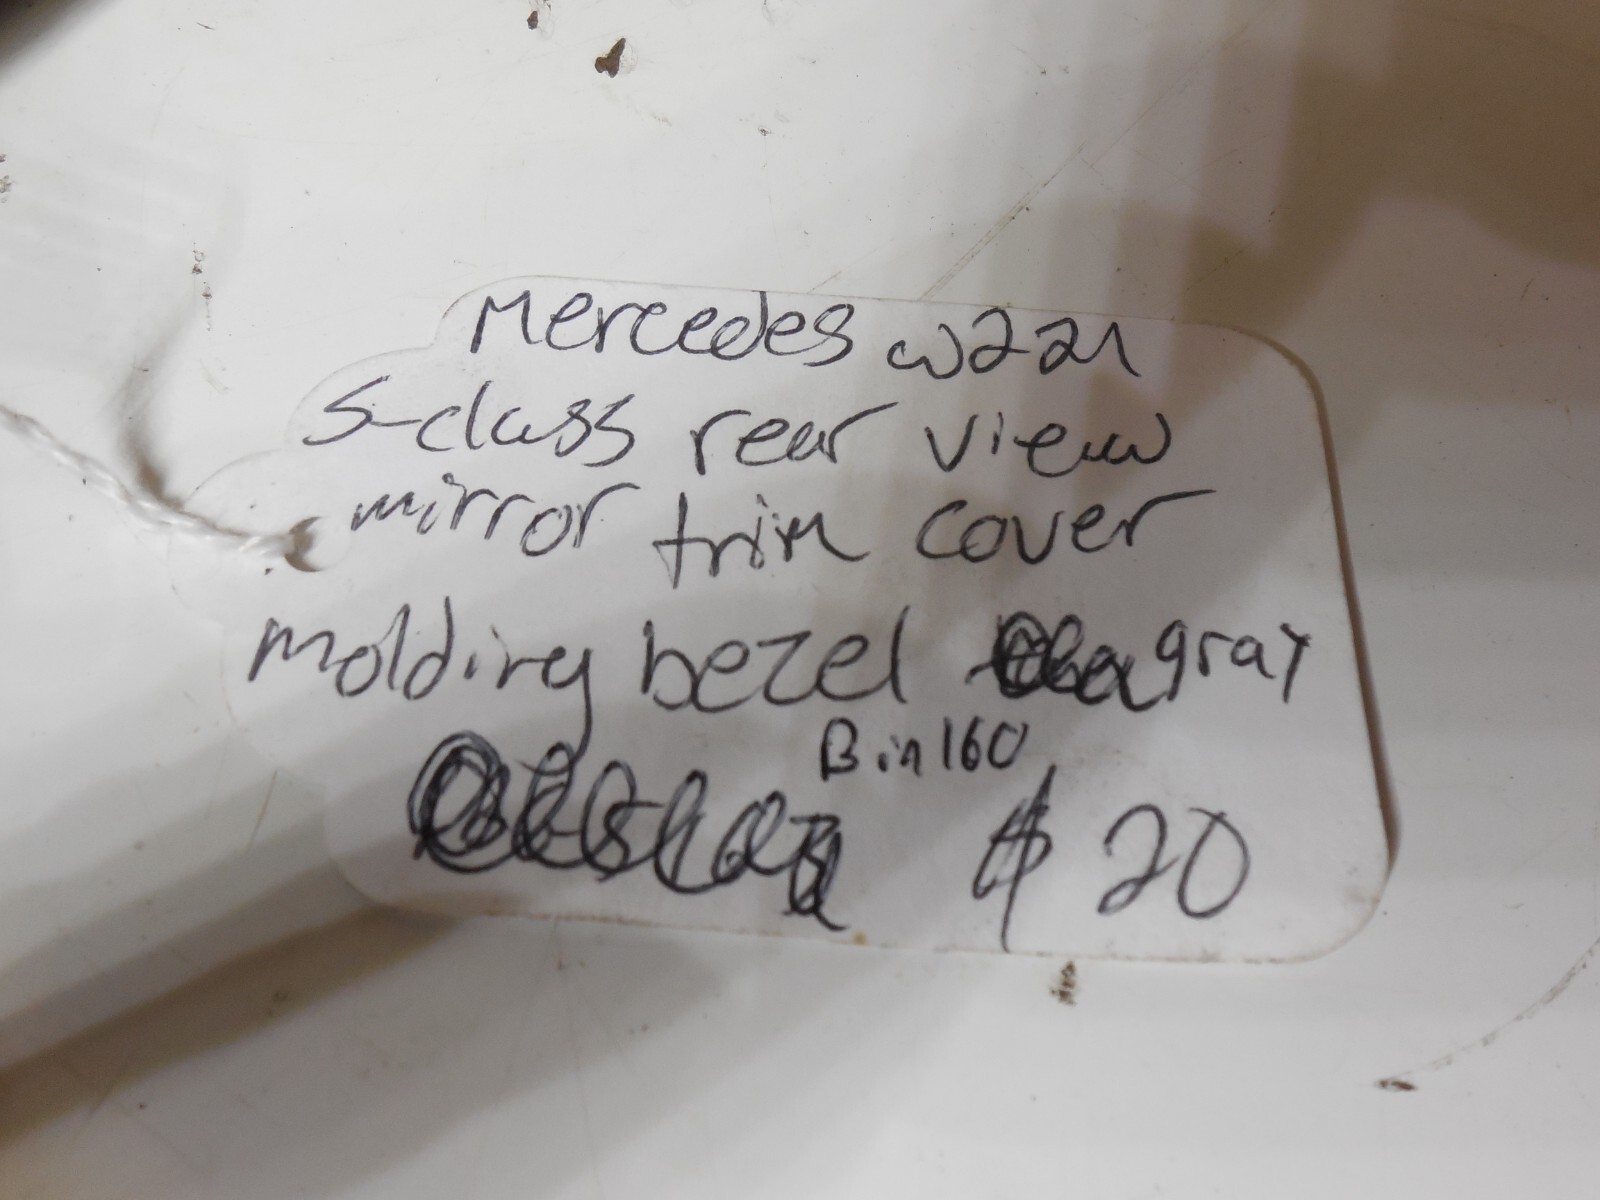 Mercedes w221
S-class rear view
mirror trim cover
molding bezel gray
Bin 160
$20